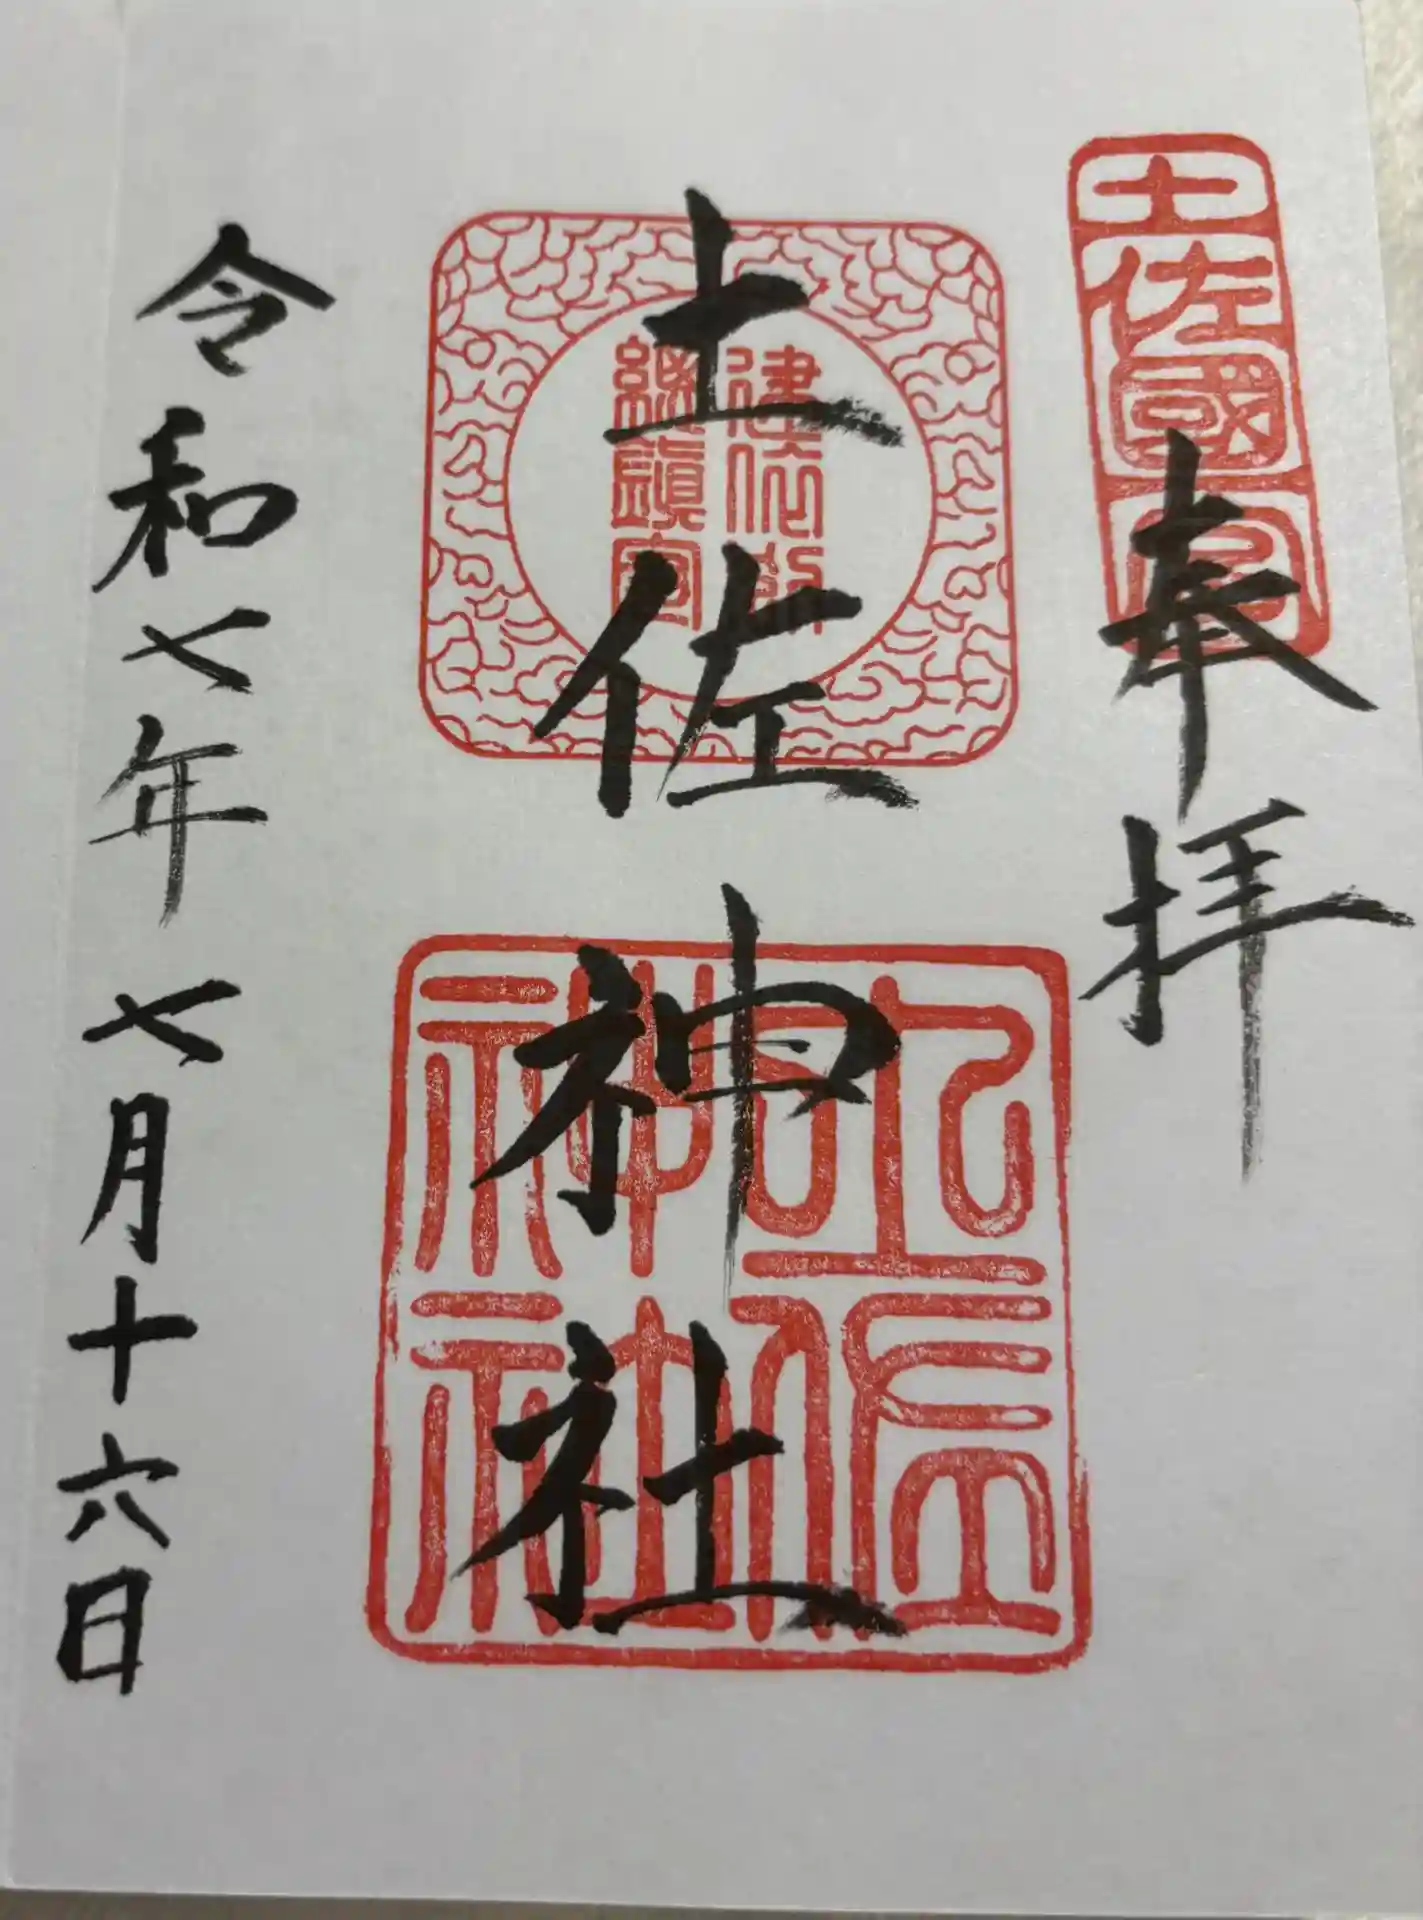 奉拝
土佐國一宮
土佐神社
建依別
総鎮守
土佐神社
令和七年七月十六日